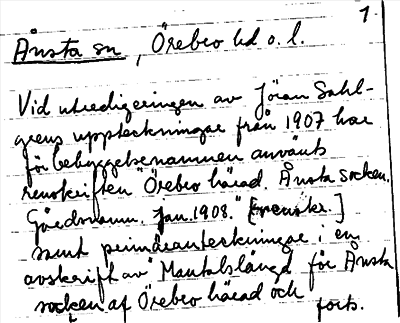 1.
Ånsta sn, Örebro hd o. l.
Vid utredigeringen av Jöran Sahl-
grens uppteckningar från 1907 har
för bebyggelsenamnen använts
renskriften "Örebro härad. Ånsta socken.
Gårdsnamn. Jan. 1908." [renskr.]
samt primäranteckningar i en
avskrift av "Mantalslängd för Ånsta
socken af Örebro härad och
forts.